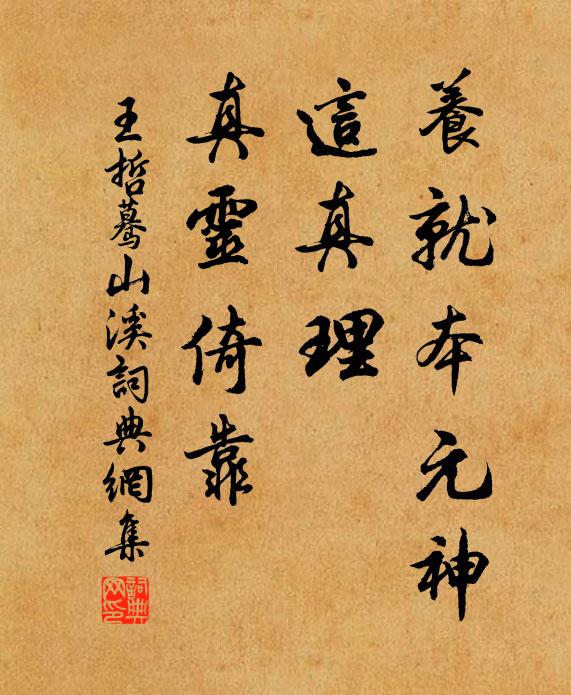 養就本元神
這真理
真靈倚靠
王哲驀山溪詞典網集
詞典網印